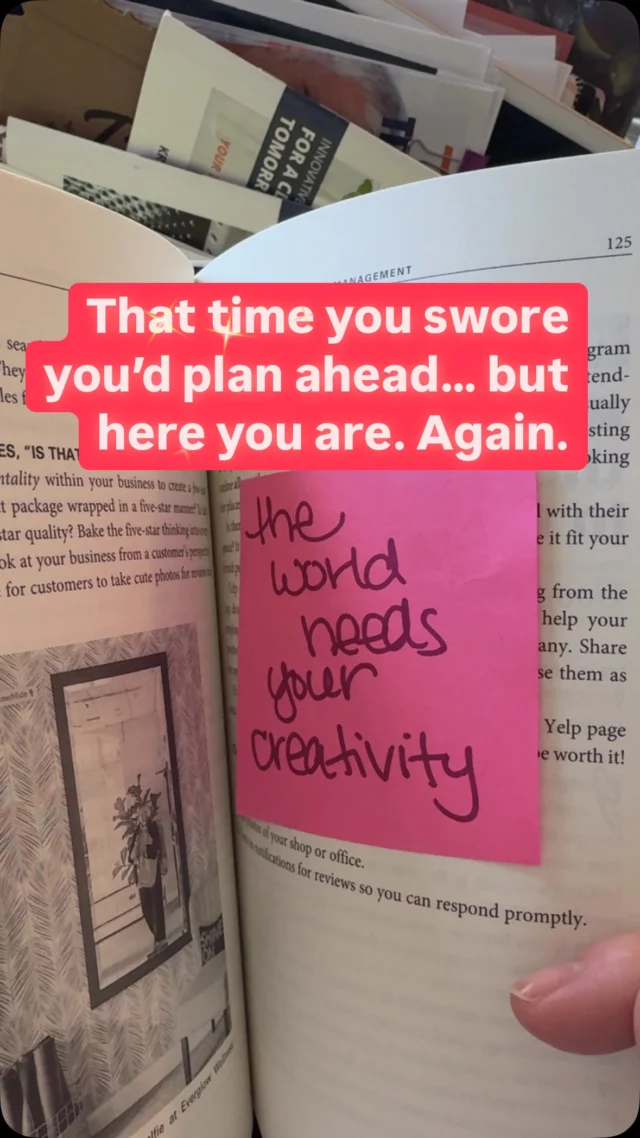 INNOVATIV
FOR A C
TOMORR
YOUR
125
ANAGEMENT
That time you swore
you’d plan ahead... but
here you are. Again.
sea
They
les f
ES, "IS THAT
ntality within your business to create a
t package wrapped in a five-star manner?
star quality? Bake the five-star thinking into
ok at your business from a customer's perspe
for customers to take cute photos for
elfie at Everglow Wellness
gram
tend-
ually
sting
king
l with their
e it fit your
g from the
help your
any. Share
se them as
Yelp page
be worth it!
the
world
needs
your
creativity
of your shop or office.
notifications for reviews so you can respond promptly.